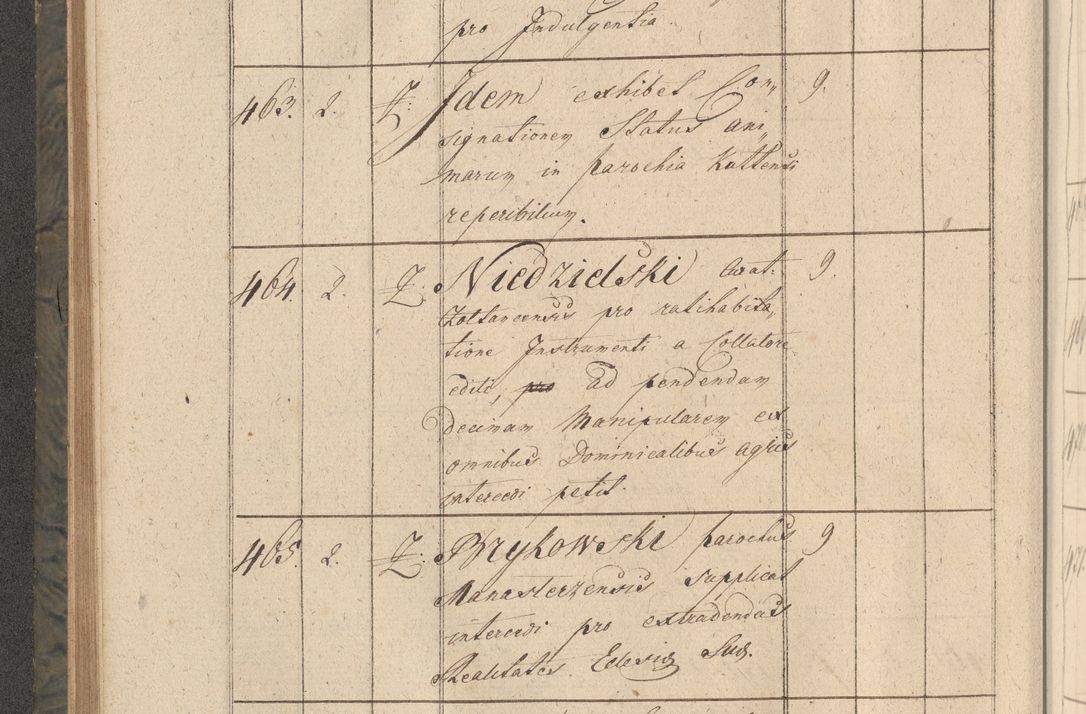 pro Indulgentia
463. 2. Z: Idem exhibet Con„ 9.
signationem Status ani„
marum in parochia Kuttensi
reperibilium.
464. 2. Z: Niedzielski Curat: 9.
Zoltancensis pro ratihabita„
tione Instrumenti a Collatore
editi, pro ad pendendam
decimam Manipularem ex
omnibus Dominicalibus agris
intercedi petit.
465. 2. Z: Brykowski parochus 9
Manasterzensis supplicat
intercedi pro extradendas
Realitates Eclesiæ Suæ.